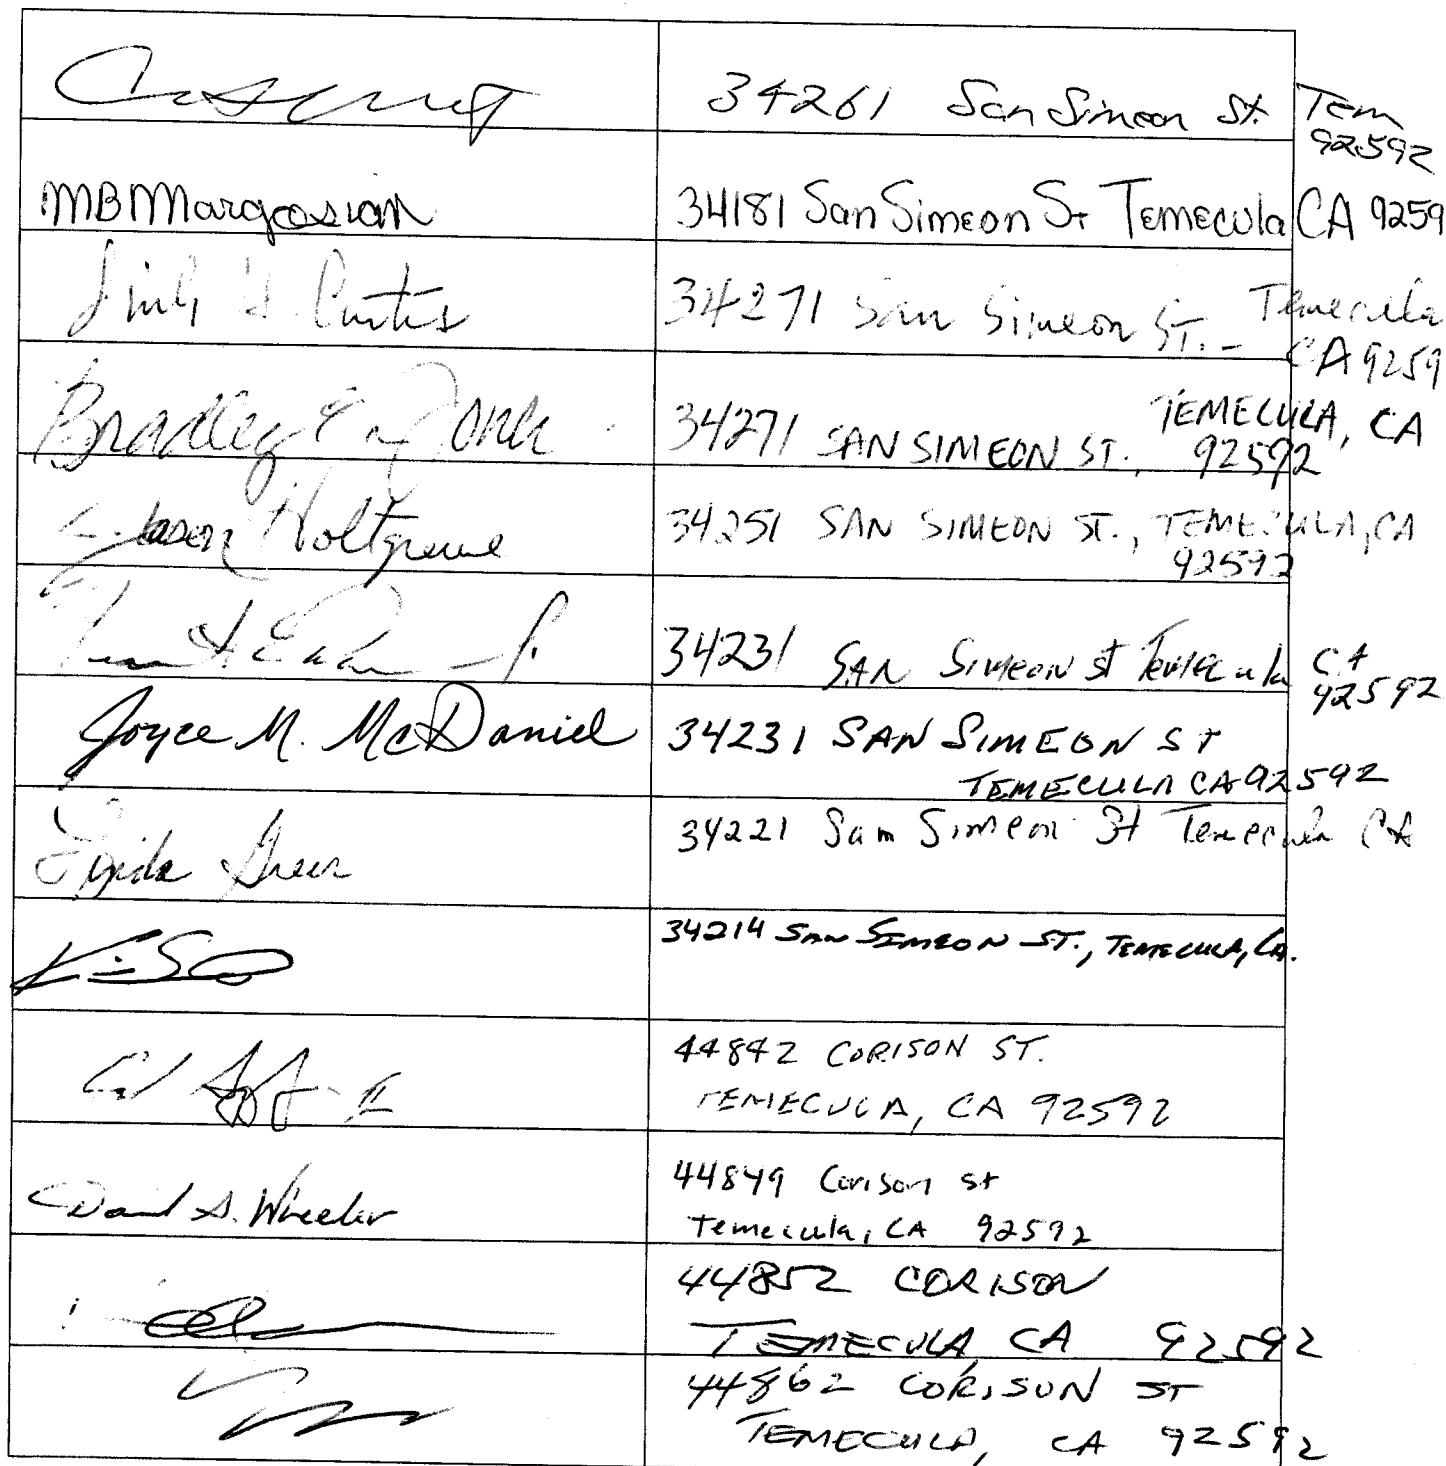 34261 San Simeon St. Tem
92592
MBMargosian 34181 San Simeon St Temecula CA 9259
Curtis 34271 San Simeon ST. - Temecula
CA 9259
Bradley Jones 34271 SAN SIMEON ST., TEMECULA, CA
92592
Jason Holtgrewe 34251 SAN SIMEON ST., TEMECULA, CA
92592
34231 SAN SIMEON St Temecula CA
92592
Joyce M. McDaniel 34231 SAN SIMEON ST
TEMECULA CA 92592
34221 San Simeon St Temecula CA
34214 SAN SIMEON ST., TEMECULA, CA.
44842 CORISON ST.
TEMECULA, CA 92592
44849 Corison st
David S. Wheeler Temecula, CA 92592
44852 CORISON
TEMECULA CA 92592
44862 CORISON ST
TEMECULA, CA 92592